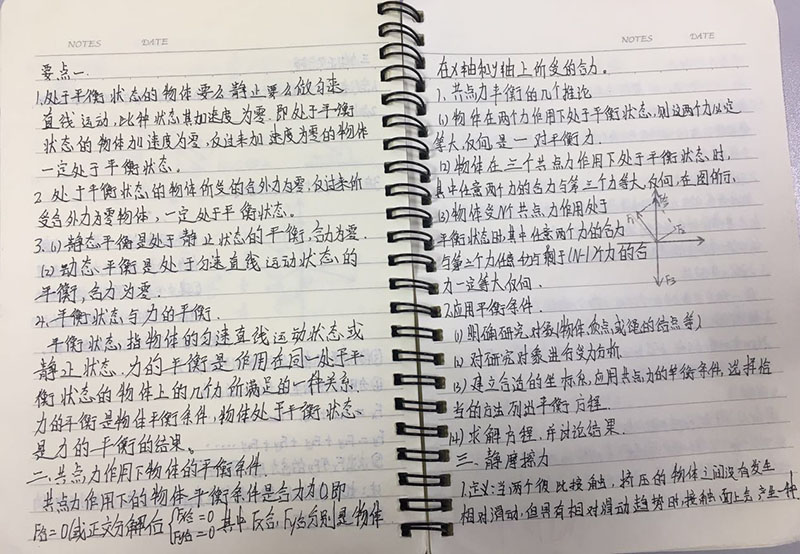 NOTES DATE
要点一.
1.处于平衡状态的物体要么静止要么做匀速
直线运动,此种状态其加速度为零.即处于平衡
状态的物体加速度为零,反过来加速度为零的物体
一定处于平衡状态。
2.处于平衡状态的物体所受的合外力为零,反过来所
受合外力为零物体,一定处于平衡状态。
3.(1)静态平衡是处于静止状态的平衡,合力为零.
(2)动态平衡是处于匀速直线运动状态的
平衡,合力为零.
4.平衡状态与力的平衡.
平衡状态指物体的匀速直线运动状态或
静止状态.力的平衡是作用在同一处于平
衡状态的物体上的几个力所满足的一种关系.
力的平衡是物体平衡条件,物体处于平衡状态
是力的平衡的结果。
二、共点力作用下物体的平衡条件.
共点力作用下的物体平衡条件是合力为0即
F合=0(或正交分解后{Fx合=0 Fy合=0 其中Fx合,Fy合分别是物体
NOTES DATE
在x轴和y轴上所受的合力。
1、共点力平衡的几个推论
(1)物体在两个力作用下处于平衡状态,则这两个力必定
等大,反向,是一对平衡力.
(2)物体在三个共点力作用下处于平衡状态时,
其中任意两个力的合力与第三个力等大,反向,在图所示,
(3)物体受N个共点力作用处于
平衡状态时,其中任意两个力的合力
与第三个力 剩于(N-1)个力的合
力一定等大,反向.
F1
F2
F3
2.应用平衡条件.
(1)明确研究对象(物体,质点或绳的结点等)
(2)对研究对象进行受力分析
(3)建立合适的坐标系,应用共点力的平衡条件,选择恰
当的方法列出平衡方程.
(4)求解方程,并讨论结果.
三、静摩擦力
1.定义:当两个彼此接触,挤压的物体之间没有发生
相对滑动,但具有相对滑动趋势时,接触面上会产生一种